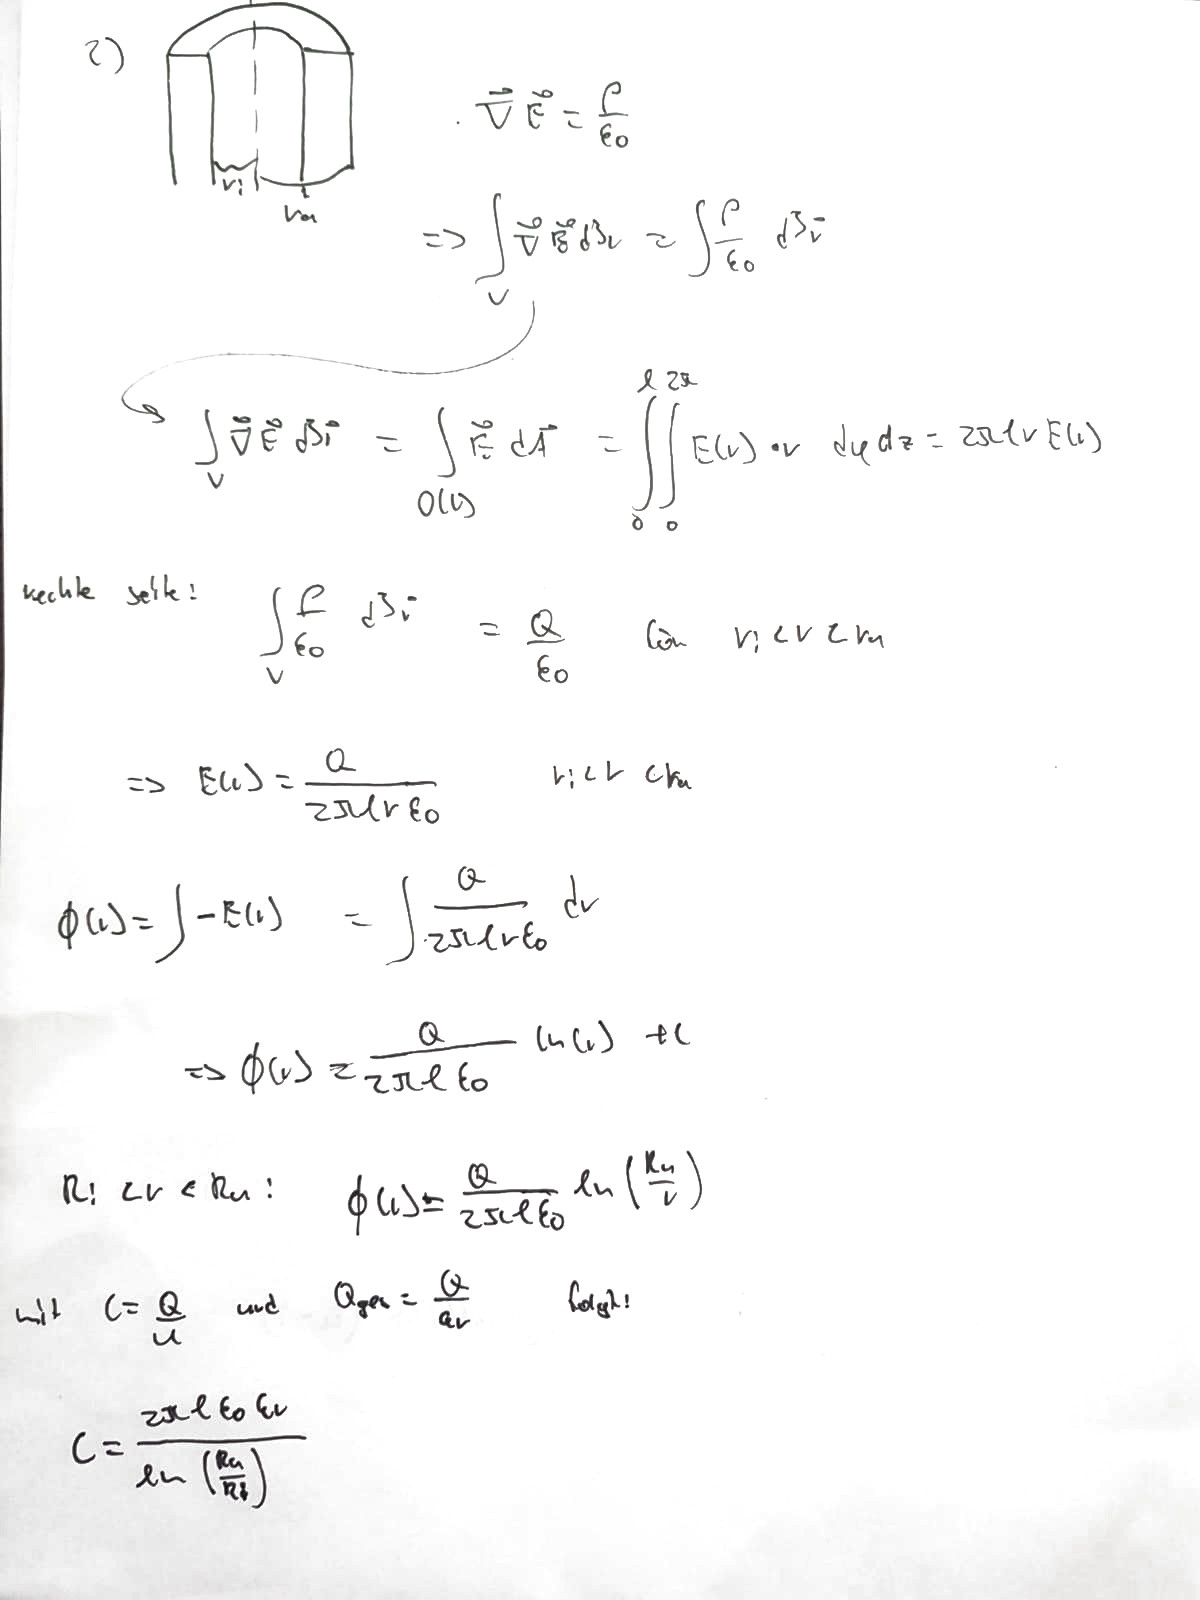 2)
r_i
r_a
∇⃗ E⃗ = ρ/ε0
=> ∫_V ∇⃗ E⃗ d³r = ∫ ρ/ε0 d³r⃗
∫_V ∇⃗ E⃗ d³r⃗ = ∫_O(V) E⃗ dA⃗ = ∫_0^l ∫_0^2π E(r) · r dφ dz = 2πlr E(r)
rechte Seite: ∫_V ρ/ε0 d³r⃗ = Q/ε0 für r_i < r < r_a
=> E(r) = Q/(2πlrε0) r_i < r < r_a
ϕ(r) = ∫ -E(r) = ∫ Q/(2πlrε0) dr
=> ϕ(r) = Q/(2πlε0) ln(r) + C
R_i < r < R_a: ϕ(r) = Q/(2πlε0) ln(R_a/r)
mit C = Q/U und Q_ges = Q/εr folgt:
C = 2πlε0εr / ln(R_a/R_i)